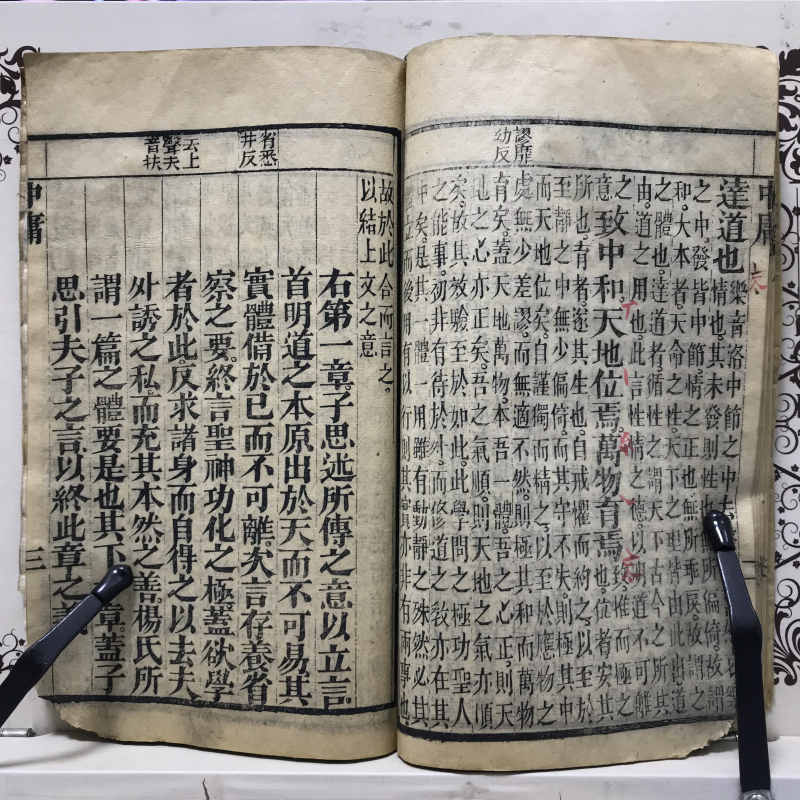 中庸
謬靡
幼反
達道也
樂音洛中節之中去
情也。其未發則性也
所偏倚。故謂
之中。發皆中節。情之正也。無所乖戾。故謂之
和。大本者。天命之性。天下之理皆由此出。道
之體也。達道者。循性之謂。天下古今之所共
由。道之用也。此言性情之德。以明道不可離
之
意
致中和。天地位焉。萬物育焉。
致。推而極之
也。位者。安其
所也。育者。遂其生也。自戒懼而約之。以至於
至靜之中。無少偏倚。而其守不失。則極其中
而天地位矣。自謹獨而精之。以至於應物之
處。無少差謬。而無適不然。則極其和而萬物
育矣。蓋天地萬物。本吾一體。吾之心正。則天
地之心亦正矣。吾之氣順。則天地之氣亦順
矣。故其效驗至於如此。此學問之極功。聖人
之能事。初非有待於外。而修道之教。亦在其
中矣。是其一體一用。雖有動靜之殊。然必其
體立而後用有以行。則其實亦非有兩事也
省悉
井反
去上
聲夫
音扶
故於此合而言之。
以結上文之意
右第一章。子思述所傳之意以立言。
首明道之本原出於天而不可易。其
實體備於己而不可離。次言存養省
察之要。終言聖神功化之極。蓋欲學
者於此。反求諸身而自得之。以去夫
外誘之私。而充其本然之善。楊氏所
謂一篇之體要是也。其下章。蓋子
思引夫子之言。以終此章之義
中庸
三